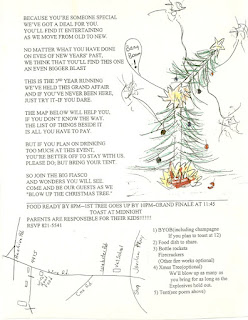 BECAUSE YOU'RE SOMEONE SPECIAL
WE'VE GOT A DEAL FOR YOU.
YOU'LL FIND IT ENTERTAINING
AS WE MOVE FROM OLD TO NEW.
NO MATTER WHAT YOU HAVE DONE
ON EVES OF NEW YEARS' PAST,
WE THINK THAT YOU'LL FIND THIS ONE
AN EVEN BIGGER BLAST
THIS IS THE YEAR RUNNING
WE'VE HELD THIS GRAND AFFAIR
AND IF YOU'VE NEVER BEEN HERE,
JUST TRY IT-IF YOU DARE.
THE MAP BELOW WILL HELP YOU,
IF YOU DON'T KNOW THE WAY.
THE LIST OF THINGS BESIDE IT
IS ALL YOU HAVE TO PAY.
BUT IF YOU PLAN ON DRINKING
TOO MUCH AT THIS EVENT,
YOU'RE BETTER OFF TO STAY WITH US.
PLEASE DO; BUT BRING YOUR TENT.
SO JOIN THE BIG FIASCO
AND WONDERS YOU WILL SEE.
COME AND BE OUR GUESTS AS WE
"BLOW UP THE CHRISTMAS TREE."
FOOD READY BY 8PM--1ST TREE GOES UP BY 10PM--GRAND FINALE AT 11:45
TOAST AT MIDNIGHT
PARENTS ARE RESPONSIBLE FOR THEIR KIDS!!!!!!
RSVP 821-5541
1) BYOB(including champagne
If you plan to toast at 12)
2) Food dish to share.
3) Bottle rockets
Firecrackers
(Other fire works optional)
4) Xmas Tree(optional)
We'll blow up as many as
you bring for as long as the
Explosives hold out.
5) Tent(see poem above)